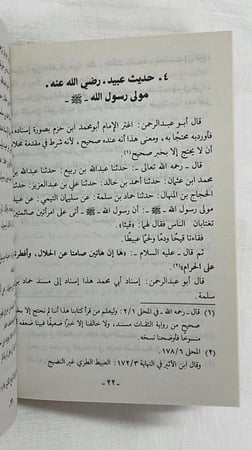 ٤ . حديث عبيد . رضي الله عنه .
مولى رسول الله - ﷺ -
قال أبو عبدالرحمن: اغتر الإمام أبو محمد ابن حزم بصورة إسناده،
فأورده محتجًا به، ومعنى هذا أنه عنده صحيح، لأنه شرط في مقدمة محلاه
أن لا يحتج إلا بخبر صحيح(١).
قال - رحمه الله تعالى -: حدثنا عبدالله بن ربيع: حدثنا عبدالله بن
محمد ابن عثمان: حدثنا أحمد بن خالد: حدثنا علي بن عبدالعزيز: حدثنا
الحجاج بن المنهال: حدثنا حماد بن سلمة: عن سليمان التيمي: عن عبيد
مولى رسول الله - ﷺ -: أن رسول الله - ﷺ - أتى على امرأتين صائمتين
تغتابان الناس فقال لهما: (قيئا)،
فقاءتا قيحًا ودمًا ولحمًا عبيطًا.
ثم قال - عليه السلام -: (ها إن هاتين صامتا عن الحلال، وأفطرتا
على الحرام)(٢).
قال أبو عبدالرحمن: إسناد أبي محمد هذا إسناد إلى مسند حماد بن
سلمة.
(١) قال - رحمه الله - في المحلى ٢/١: وليعلم من قرأ كتابنا هذا أننا لم نحتج إلا بخبر
صحيح من رواية الثقات مسند، ولا خالفنا إلا خبرًا ضعيفًا فبينا ضعفه،
أو منسوخًا فأوضحنا نسخه.
(٢) المحلى ١٧٨/٦.
وقال ابن الأثير في النهاية ١٧٢/٣: العبيط الطري غير النضيج.
- ٢٢ -